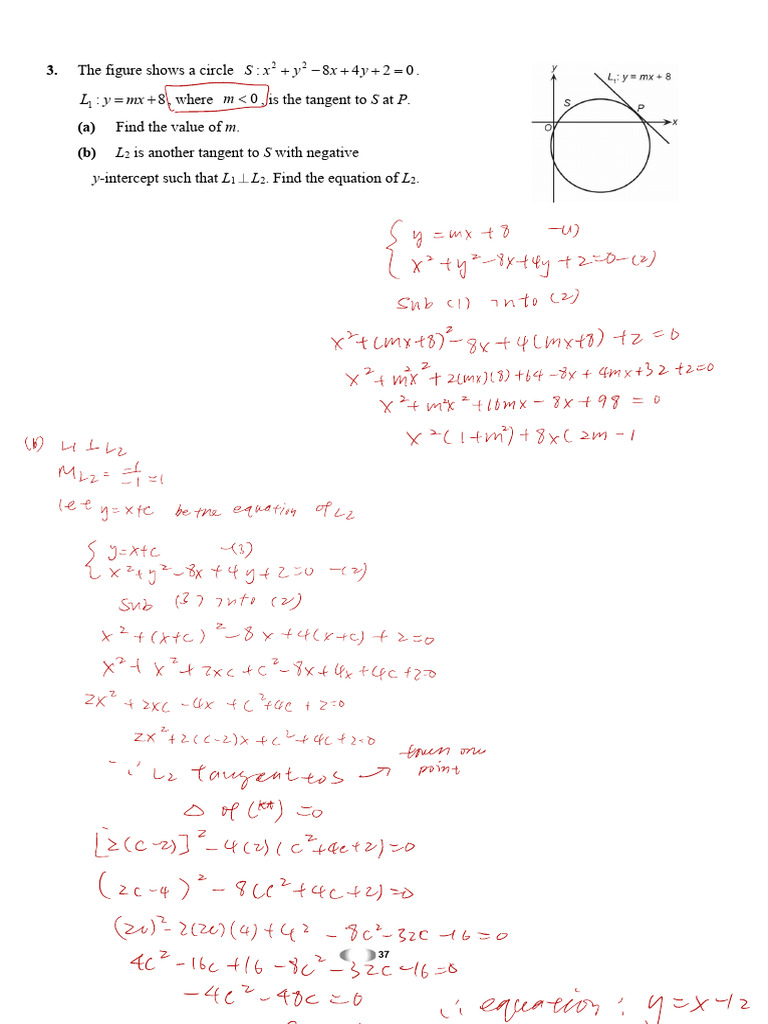 3. The figure shows a circle S : x² + y² − 8x + 4y + 2 = 0 .
L₁ : y = mx + 8 , where m < 0 , is the tangent to S at P.
(a) Find the value of m.
(b) L₂ is another tangent to S with negative
y-intercept such that L₁ ⊥ L₂. Find the equation of L₂.
y
L₁: y = mx + 8
S
P
O
x
{ y = mx + 8 —(1)
x² + y² − 8x + 4y + 2 = 0 —(2)
Sub (1) into (2)
x² + (mx+8)² − 8x + 4(mx+8) + 2 = 0
x² + m²x² + 2(mx)(8) + 64 − 8x + 4mx + 32 + 2 = 0
x² + m²x² + 16mx − 8x + 98 = 0
x²(1+m²) + 8x(2m − 1
(b) L1 ⊥ L2
M_L2 = −1/−1 = 1
let y = x+c be the equation of L2
{ y = x+c —(3)
x² + y² − 8x + 4y + 2 = 0 —(2)
Sub (3) into (2)
x² + (x+c)² − 8x + 4(x+c) + 2 = 0
x² + x² + 2xc + c² − 8x + 4x + 4c + 2 = 0
2x² + 2xc − 4x + c² + 4c + 2 = 0
2x² + 2(c−2)x + c² + 4c + 2 = 0
∵ L2 tangent to S → touch one
point
Δ of (**) = 0
[2(c−2)]² − 4(2)(c² + 4c + 2) = 0
(2c−4)² − 8(c² + 4c + 2) = 0
(2c)² − 2(2c)(4) + 4² − 8c² − 32c − 16 = 0
37
4c² − 16c + 16 − 8c² − 32c − 16 = 0
−4c² − 48c = 0
∴ equation : y = x − 12